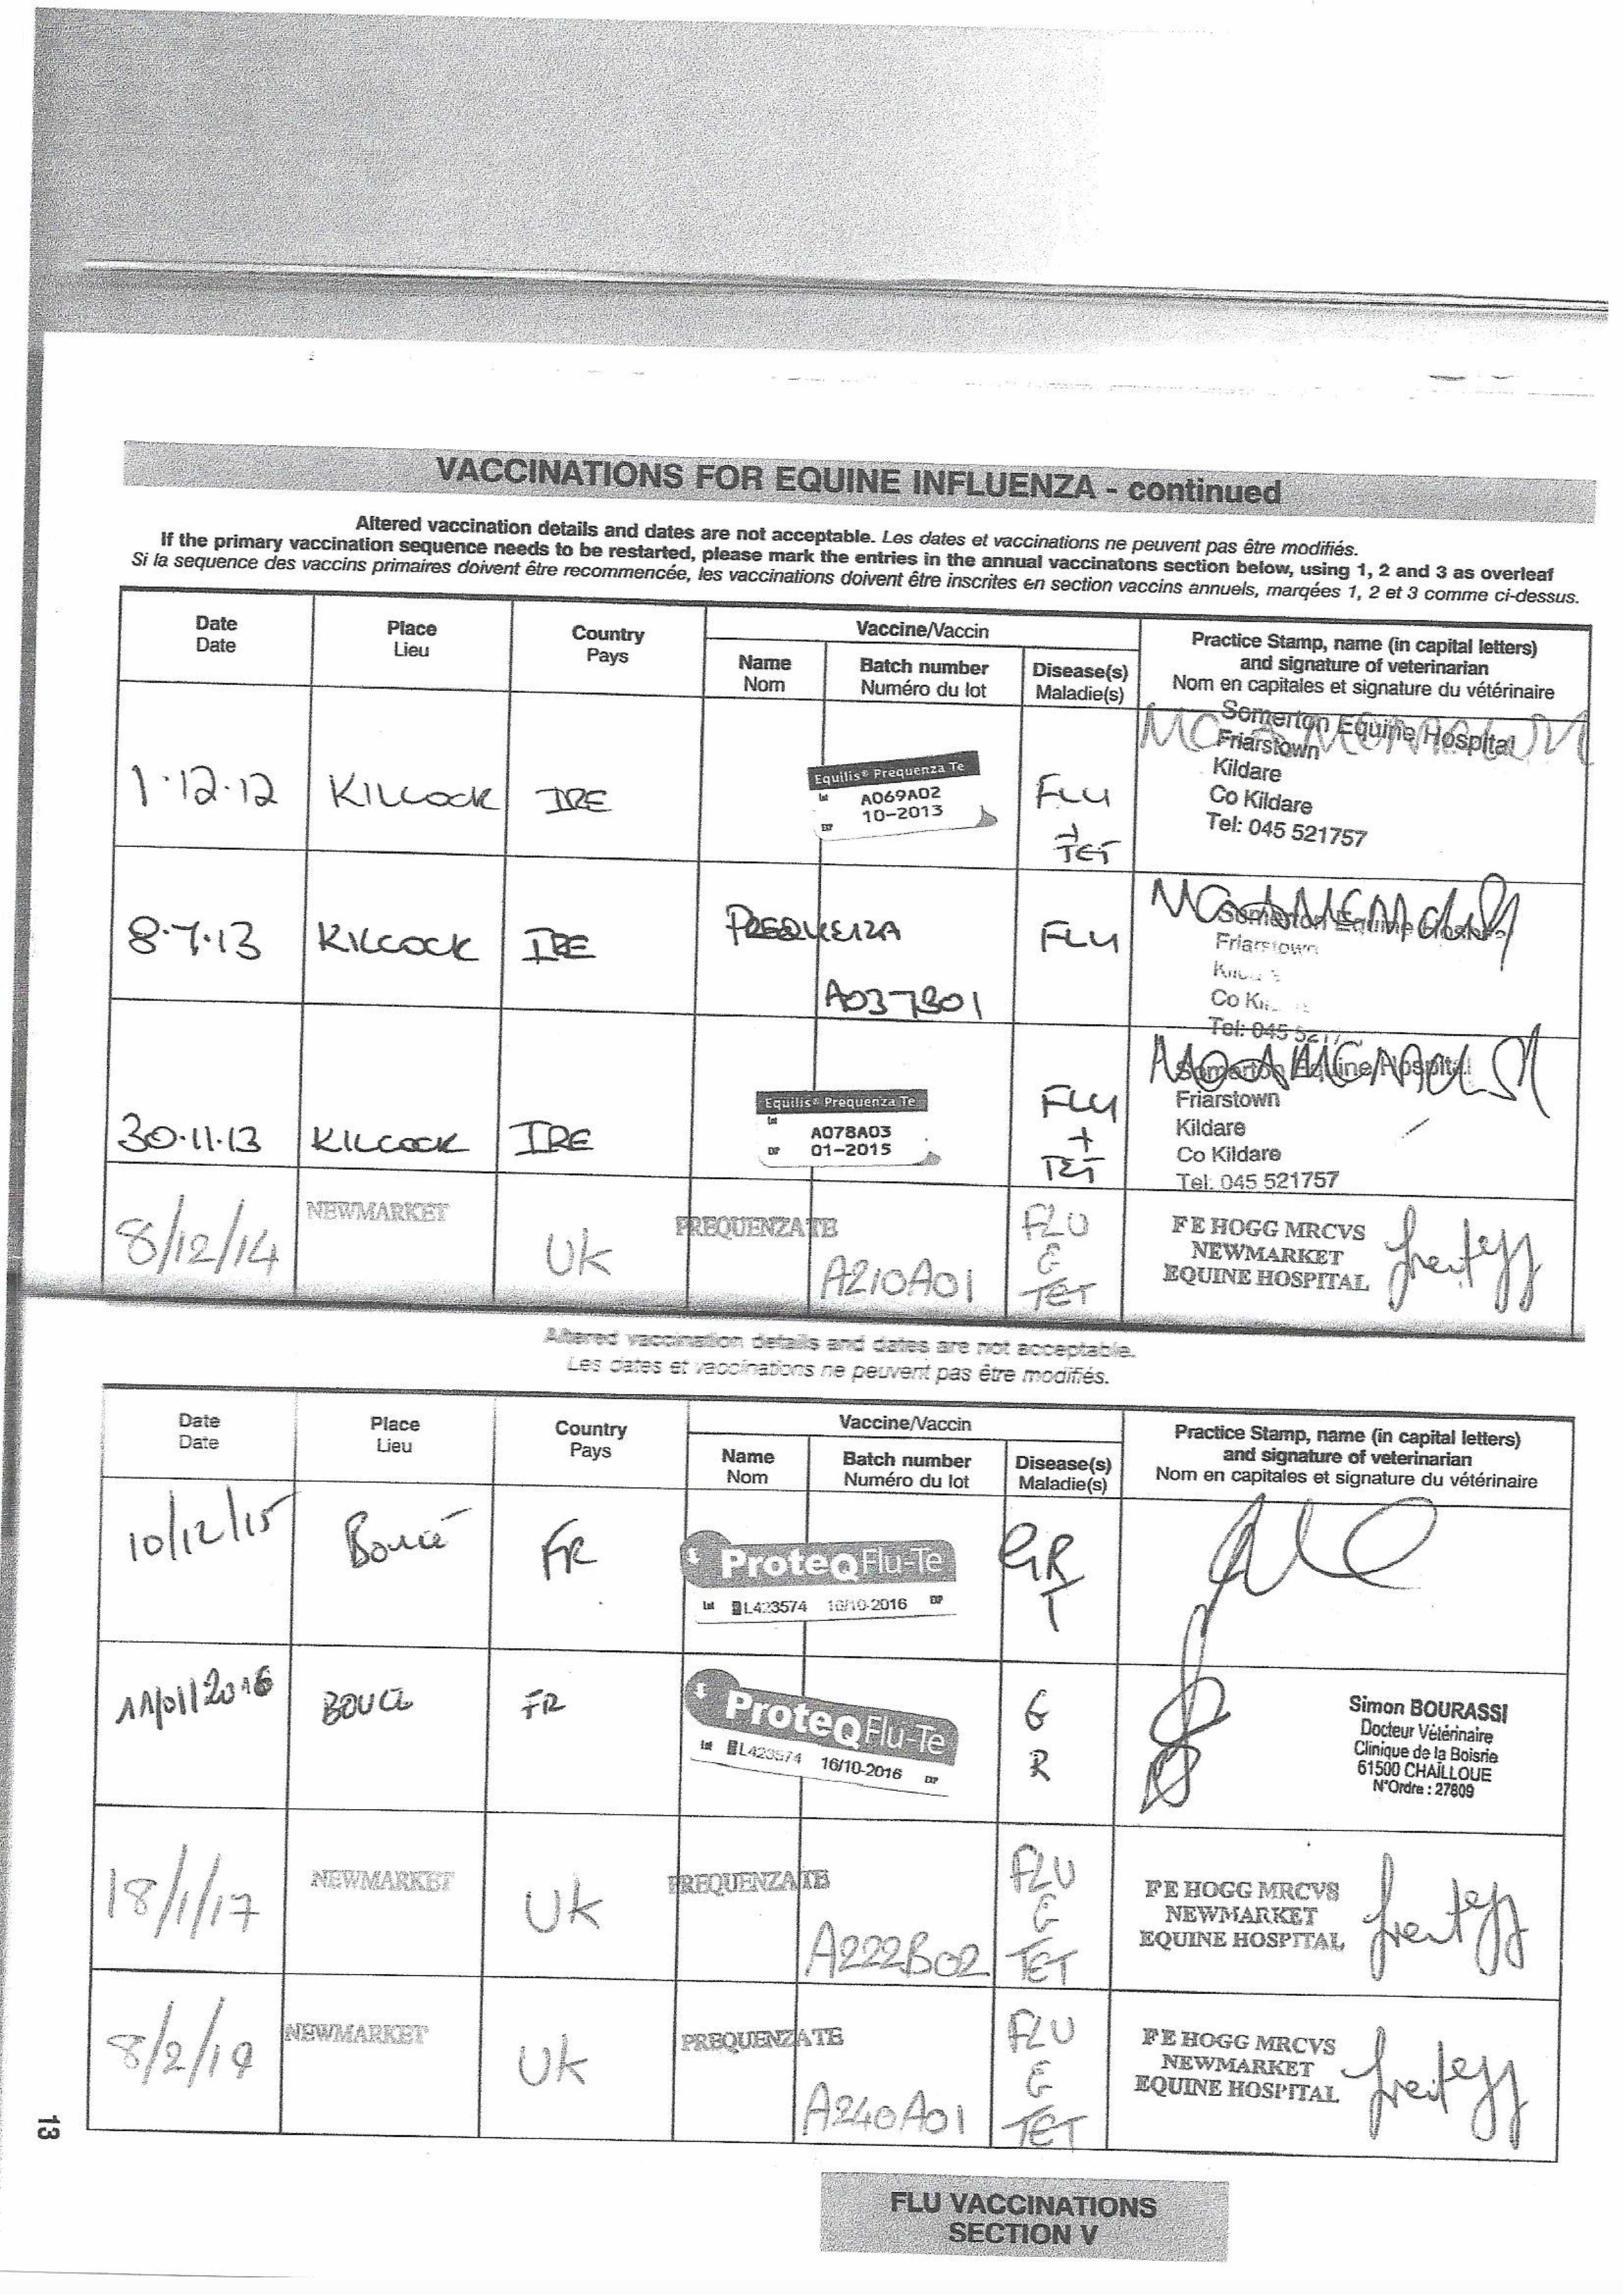 VACCINATIONS FOR EQUINE INFLUENZA - continued
Altered vaccination details and dates are not acceptable. Les dates et vaccinations ne peuvent pas être modifiés.
If the primary vaccination sequence needs to be restarted, please mark the entries in the annual vaccinatons section below, using 1, 2 and 3 as overleaf
Si la sequence des vaccins primaires doivent être recommencée, les vaccinations doivent être inscrites en section vaccins annuels, marqées 1, 2 et 3 comme ci-dessus.
Date
Date
Place
Lieu
Country
Pays
Vaccine/Vaccin
Name
Nom
Batch number
Numéro du lot
Disease(s)
Maladie(s)
Practice Stamp, name (in capital letters)
and signature of veterinarian
Nom en capitales et signature du vétérinaire
1.12.12
KILCOCK
IRE
Equilis® Prequenza Te
Lot A069A02
EXP 10-2013
FLU
+
TET
Somerton Equine Hospital
Friarstown
Kildare
Co Kildare
Tel: 045 521757
8.7.13
KILCOCK
IRE
PREQUENZA
A037B01
FLU
Somerton Equine
Friarstown
Co
Tel: 045
30.11.13
KILCOCK
IRE
Equilis® Prequenza Te
Lot A078A03
EXP 01-2015
FLU
+
TET
Somerton Equine Hospital
Friarstown
Kildare
Co Kildare
Tel: 045 521757
8/12/14
NEWMARKET
UK
PREQUENZA TE
A210A01
FLU
&
TET
F E HOGG MRCVS
NEWMARKET
EQUINE HOSPITAL
Altered vaccination details and dates are not acceptable.
Les dates et vaccinations ne peuvent pas être modifiés.
Date
Date
Place
Lieu
Country
Pays
Vaccine/Vaccin
Name
Nom
Batch number
Numéro du lot
Disease(s)
Maladie(s)
Practice Stamp, name (in capital letters)
and signature of veterinarian
Nom en capitales et signature du vétérinaire
10/12/15
Boucé
FR
ProteqFlu-Te
Lot L423574 16/10-2016 EXP
GR
T
11/01/2016
BOUCE
FR
ProteqFlu-Te
Lot L423574 16/10-2016 EXP
G
R
Simon BOURASSI
Docteur Vétérinaire
Clinique de la Boisrie
61500 CHAILLOUE
N°Ordre : 27809
18/1/17
NEWMARKET
UK
PREQUENZA TE
A222B02
FLU
&
TET
F E HOGG MRCVS
NEWMARKET
EQUINE HOSPITAL
NEWMARKET
UK
PREQUENZA TE
A240A01
FLU
&
TET
F E HOGG MRCVS
NEWMARKET
EQUINE HOSPITAL
13
FLU VACCINATIONS
SECTION V